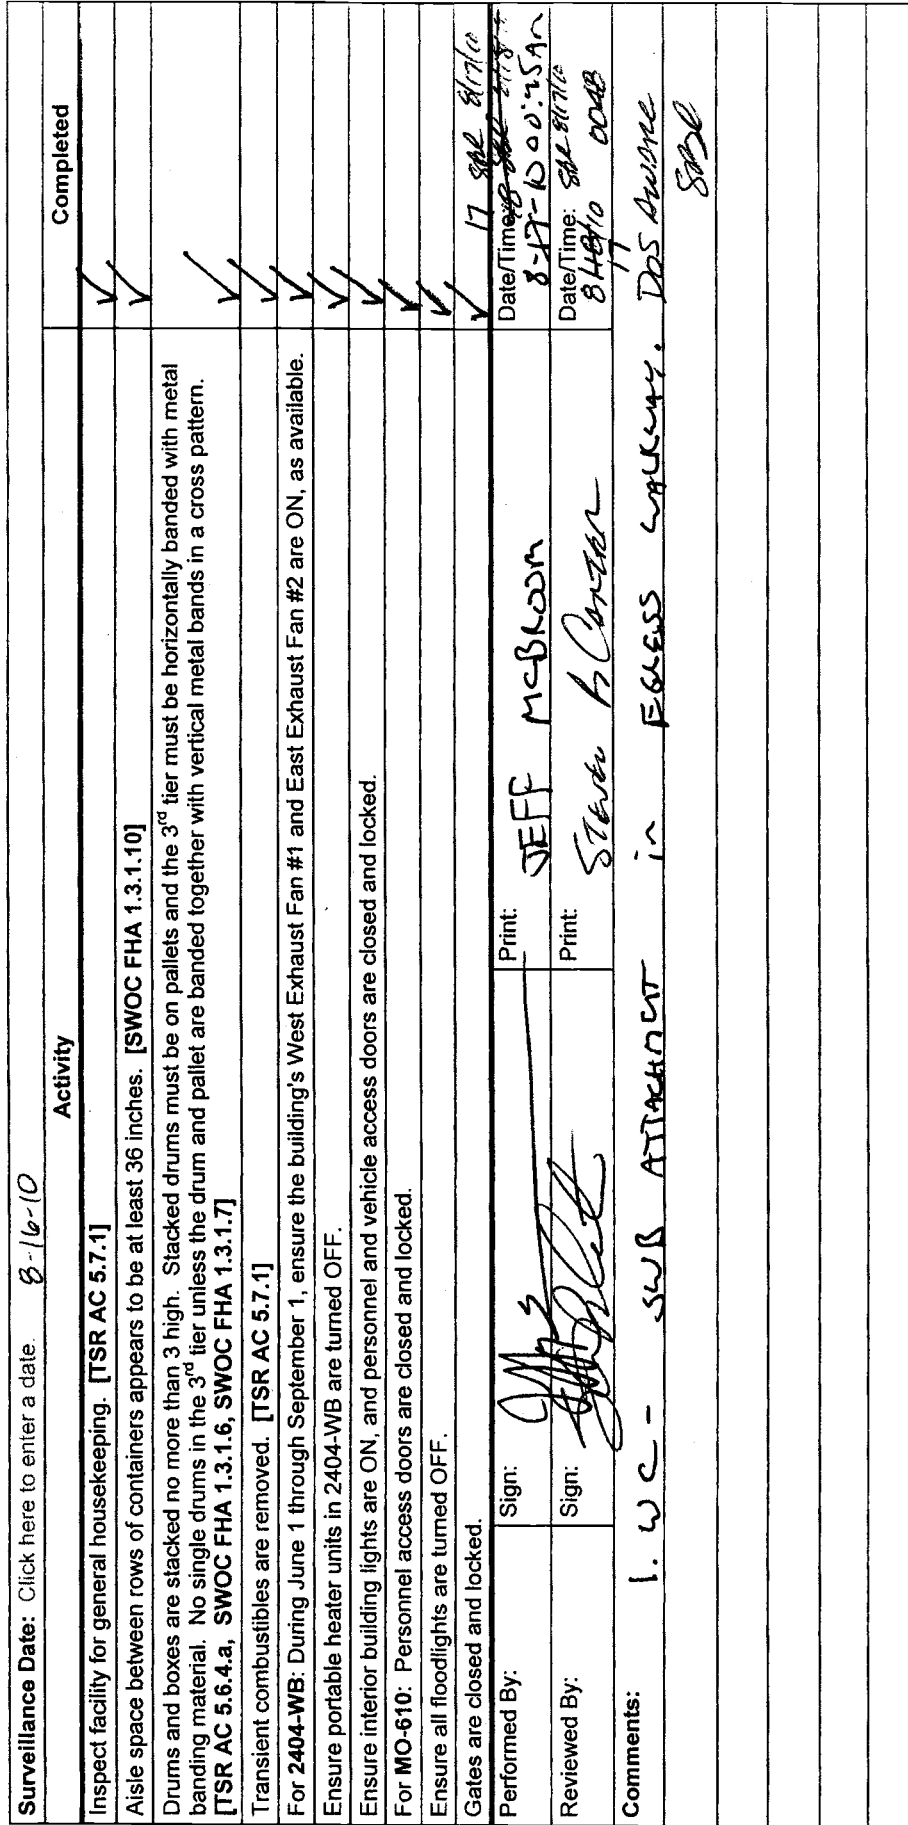 Surveillance Date: Click here to enter a date. 8-16-10
Activity
Completed
Inspect facility for general housekeeping. [TSR AC 5.7.1]
Aisle space between rows of containers appears to be at least 36 inches. [SWOC FHA 1.3.1.10]
Drums and boxes are stacked no more than 3 high. Stacked drums must be on pallets and the 3rd tier must be horizontally banded with metal
banding material. No single drums in the 3rd tier unless the drum and pallet are banded together with vertical metal bands in a cross pattern.
[TSR AC 5.6.4.a, SWOC FHA 1.3.1.6, SWOC FHA 1.3.1.7]
Transient combustibles are removed. [TSR AC 5.7.1]
For 2404-WB: During June 1 through September 1, ensure the building's West Exhaust Fan #1 and East Exhaust Fan #2 are ON, as available.
Ensure portable heater units in 2404-WB are turned OFF.
Ensure interior building lights are ON, and personnel and vehicle access doors are closed and locked.
For MO-610: Personnel access doors are closed and locked.
Ensure all floodlights are turned OFF.
Gates are closed and locked.
17 8/17/10
Performed By: Sign: Print: JEFF McBROOM Date/Time:
8-17-10 00:25AM
Reviewed By: Sign: Print: Steven Date/Time: 8/17/10
17 0048
Comments: 1. WC - SWB ATTACHMENT in EGRESS WALKWAY. DOS AWARE